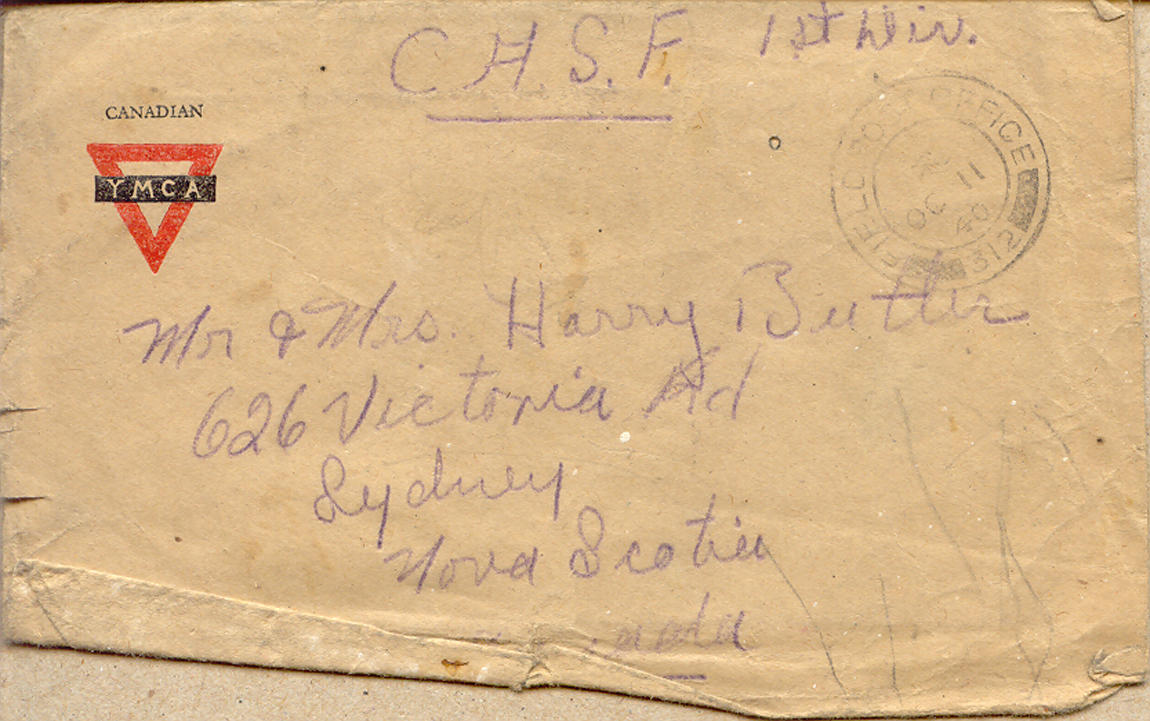 C.A.S.F. 1st Div.
CANADIAN
YMCA
FIELD POST OFFICE
OC 11
40
312
Mr & Mrs. Harry Butler
626 Victoria Rd
Sydney
Nova Scotia